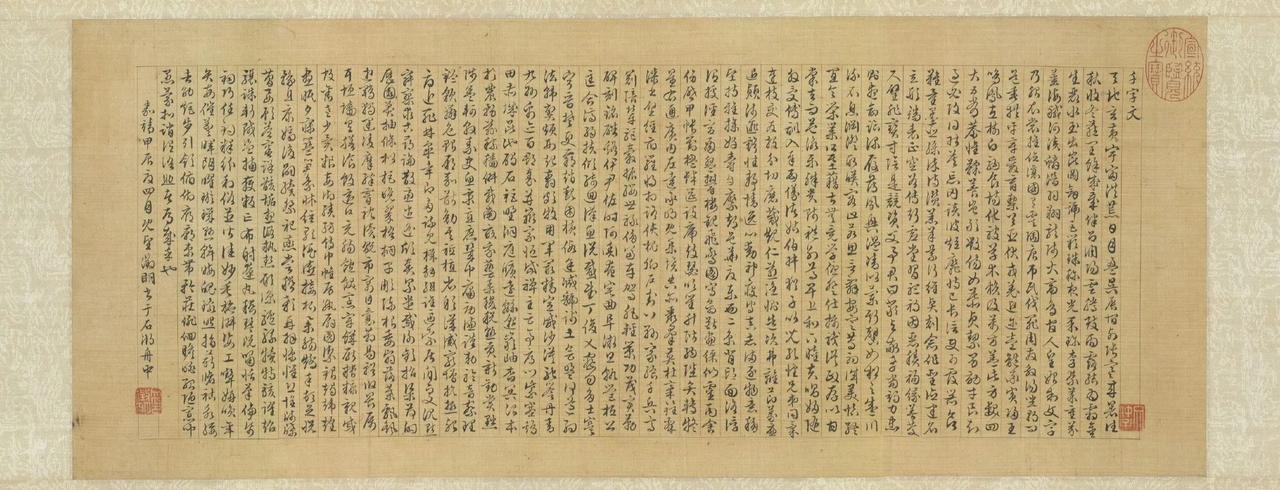 千字文
天地玄黃宇宙洪荒日月盈昃辰宿列張寒來暑往
秋收冬藏閏餘成歲律呂調陽雲騰致雨露結為霜金
生麗水玉出崑岡劍號巨闕珠稱夜光果珍李柰菜重芥
薑海鹹河淡鱗潛羽翔龍師火帝鳥官人皇始制文字
乃服衣裳推位讓國有虞陶唐弔民伐罪周發殷湯坐朝問
道垂拱平章愛育黎首臣伏戎羌遐邇壹體率賓歸王
鳴鳳在樹白駒食場化被草木賴及萬方蓋此身髮四
大五常恭惟鞠養豈敢毀傷女慕貞潔男效才良知
過必改得能莫忘罔談彼短靡恃己長信使可覆器欲
難量墨悲絲染詩讚羔羊景行維賢剋念作聖德建名
立形端表正空谷傳聲虛堂習聽禍因惡積福緣善慶
尺璧非寶寸陰是競資父事君曰嚴與敬孝當竭力忠
則盡命臨深履薄夙興溫凊似蘭斯馨如松之盛川
流不息淵澄取映容止若思言辭安定篤初誠美慎終
宜令榮業所基籍甚無竟學優登仕攝職從政存以甘
棠去而益詠樂殊貴賤禮別尊卑上和下睦夫唱婦隨
外受傅訓入奉母儀諸姑伯叔猶子比兒孔懷兄弟同氣
連枝交友投分切磨箴規仁慈隱惻造次弗離節義廉
退顛沛匪虧性靜情逸心動神疲守真志滿逐物意移
堅持雅操好爵自縻都邑華夏東西二京背邙面洛浮
渭據涇宮殿盤鬱樓觀飛驚圖寫禽獸畫綵仙靈丙舍
傍啟甲帳對楹肆筵設席鼓瑟吹笙升階納陛弁轉疑
星右通廣內左達承明既集墳典亦聚群英杜稾鍾隸
漆書壁經府羅將相路俠槐卿戶封八縣家給千兵高
冠陪輦驅轂振纓世祿侈富車駕肥輕策功茂實勒
碑刻銘磻溪伊尹佐時阿衡奄宅曲阜微旦孰營桓公
匡合濟弱扶傾綺迴漢惠說感武丁俊乂密勿多士寔
寧晉楚更霸趙魏困橫假途滅虢踐土會盟何遵約
法韓弊煩刑起翦頗牧用軍最精宣威沙漠馳譽丹青
九州禹跡百郡秦并嶽宗恒岱禪主云亭雁門紫塞雞
田赤城昆池碣石鉅野洞庭曠遠綿邈巖岫杳冥治本
於農務茲稼穡俶載南畝我藝黍稷稅熟貢新勸賞黜
陟孟軻敦素史魚秉直庶幾中庸勞謙謹敕聆音察理
鑒貌辨色貽厥嘉猷勉其祗植省躬譏誡寵增抗極殆
辱近恥林皋幸即兩疏見機解組誰逼索居閑處沉默
寂寥求古尋論散慮逍遙欣奏累遣慼謝歡招渠荷的
歷園莽抽條枇杷晚翠梧桐早凋陳根委翳落葉飄
颻遊鵾獨運凌摩絳霄耽讀翫市寓目囊箱易輶攸畏屬
耳垣牆具膳飡飯適口充腸飽飫烹宰饑厭糟糠親戚
故舊老少異糧妾御績紡侍巾帷房紈扇圓潔銀燭煒煌
晝眠夕寐藍筍象床絃歌酒讌接杯舉觴矯手頓足悅
豫且康嫡後嗣續祭祀烝嘗稽顙再拜悚懼恐惶牋牒
簡要顧答審詳骸垢想浴執熱願涼驢騾犢特駭躍超
驤誅斬賊盜捕獲叛亡布射遼丸嵇琴阮嘯恬筆倫紙
鈞巧任釣釋紛利俗並皆佳妙毛施淑姿工顰妍笑年
矢每催曦暉朗曜璇璣懸斡晦魄環照指薪修祜永綏
吉劭矩步引領俯仰廊廟束帶矜莊徘徊瞻眺孤陋寡聞
愚蒙等誚謂語助者焉哉乎也
嘉靖甲辰四月既望徵明書于石湖舟中
宣統御覽之寶